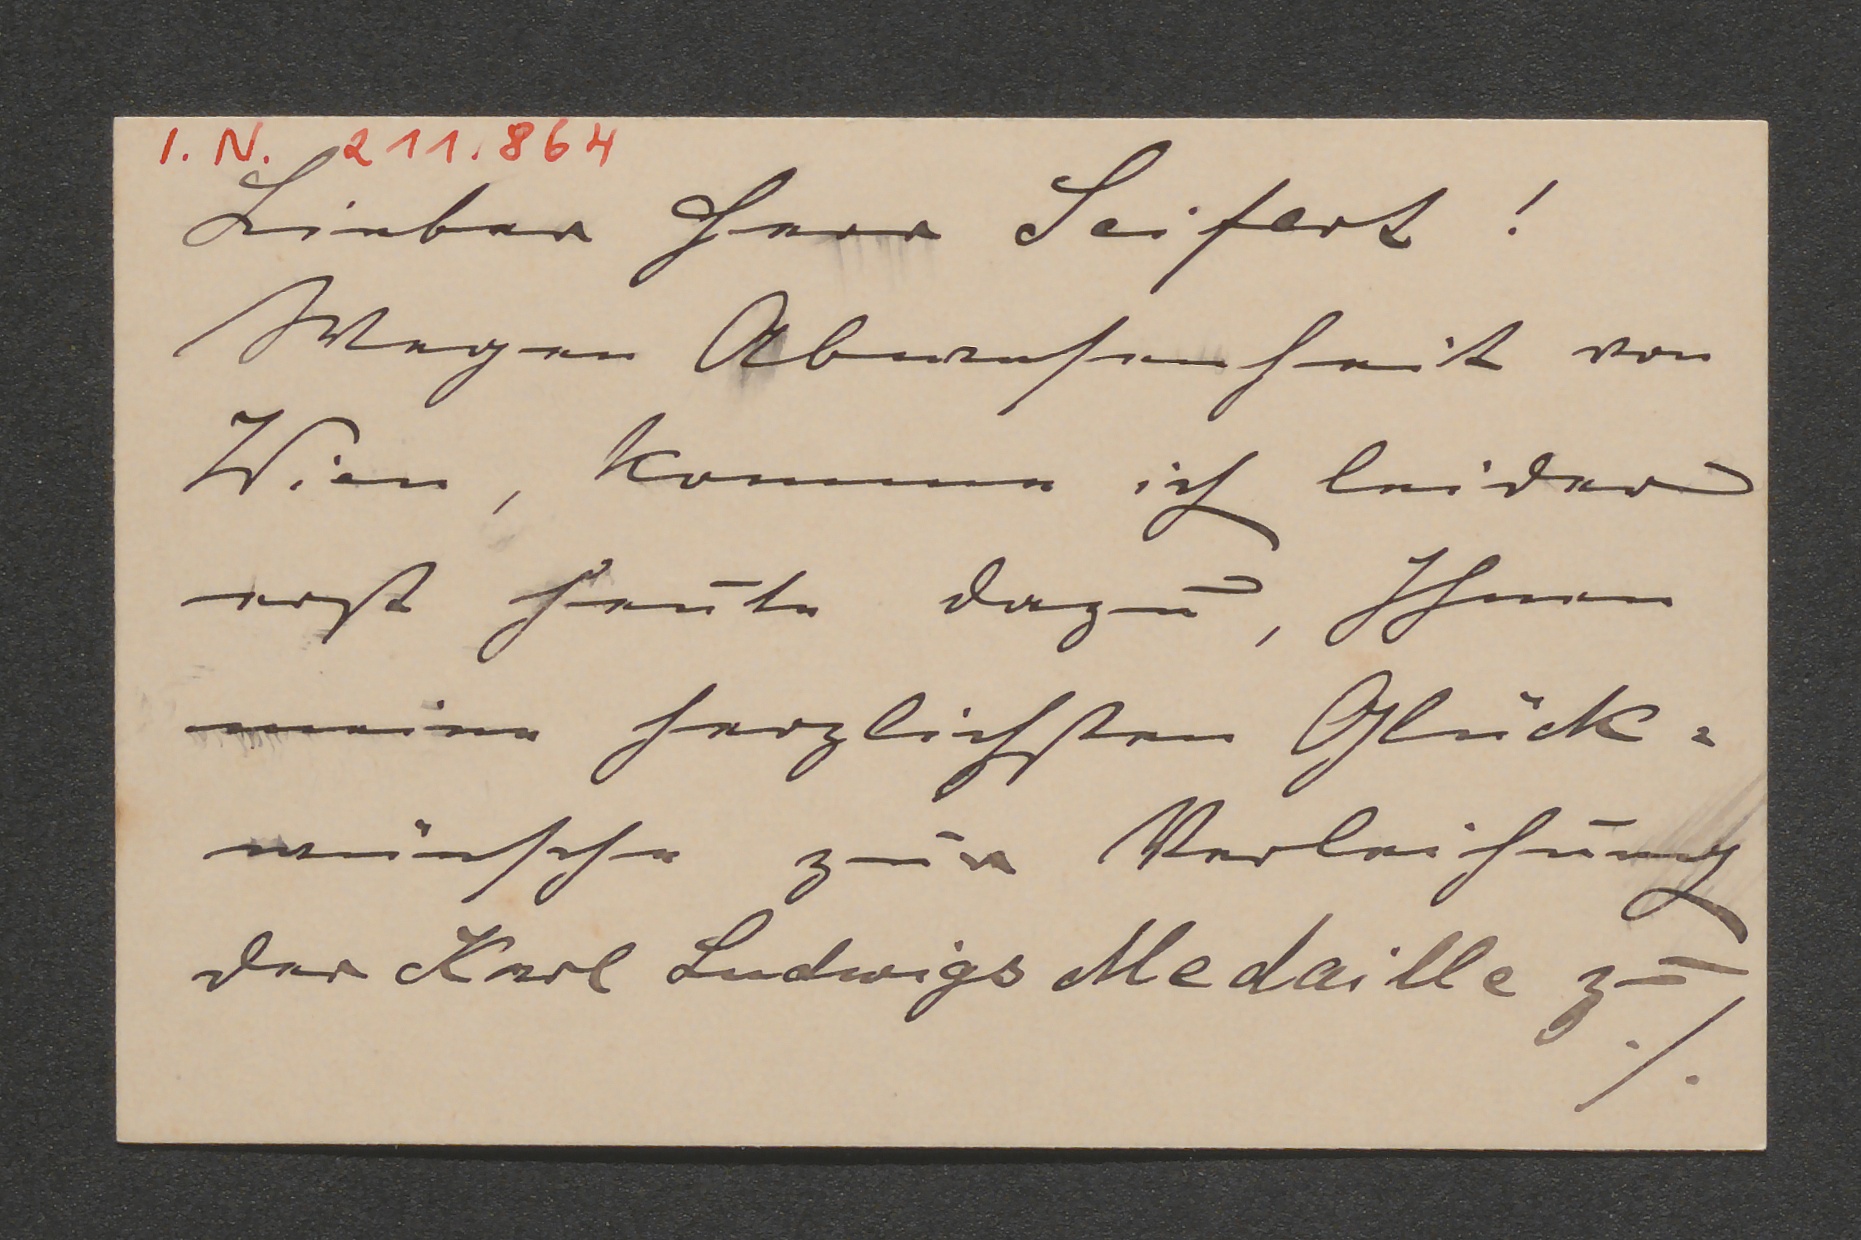 I. N. 211.864
Lieber Herr Seifert!
Wegen Abwesenheit von
Wien, komme ich leider
erst heute dazu, Ihnen
meine herzlichsten Glück=
wünsche zur Verleihung
der Karl Ludwigs Medaille zu
./.